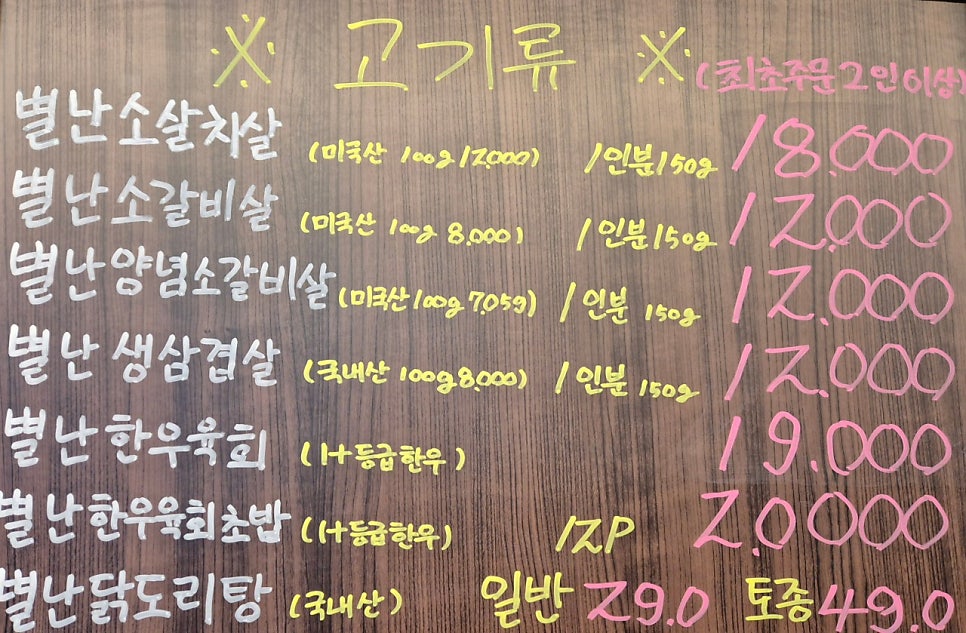 ※ 고기류 ※ (최초주문 2인 이상)
별난 소살치살 (미국산 100g 12,000) 1인분 150g 18.000
별난 소갈비살 (미국산 100g 8,000) 1인분 150g 12.000
별난 양념소갈비살 (미국산 100g 7,059) 1인분 150g 12.000
별난 생삼겹살 (국내산 100g 8,000) 1인분 150g 12.000
별난 한우육회 (1+등급 한우) 19.000
별난 한우육회초밥 (1+등급한우) 12P 2.0000
별난 닭도리탕 (국내산) 일반 29.0 토종 49.0